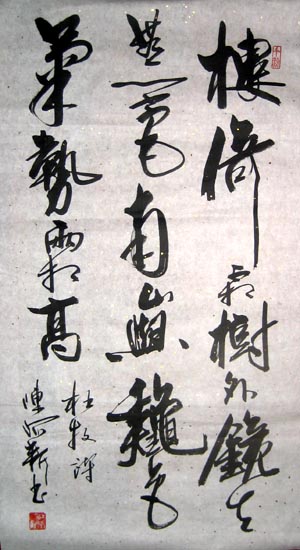 樓倚霜樹外鏡天
無一毫南山與龝色
氣勢兩相高
杜牧詩
陳